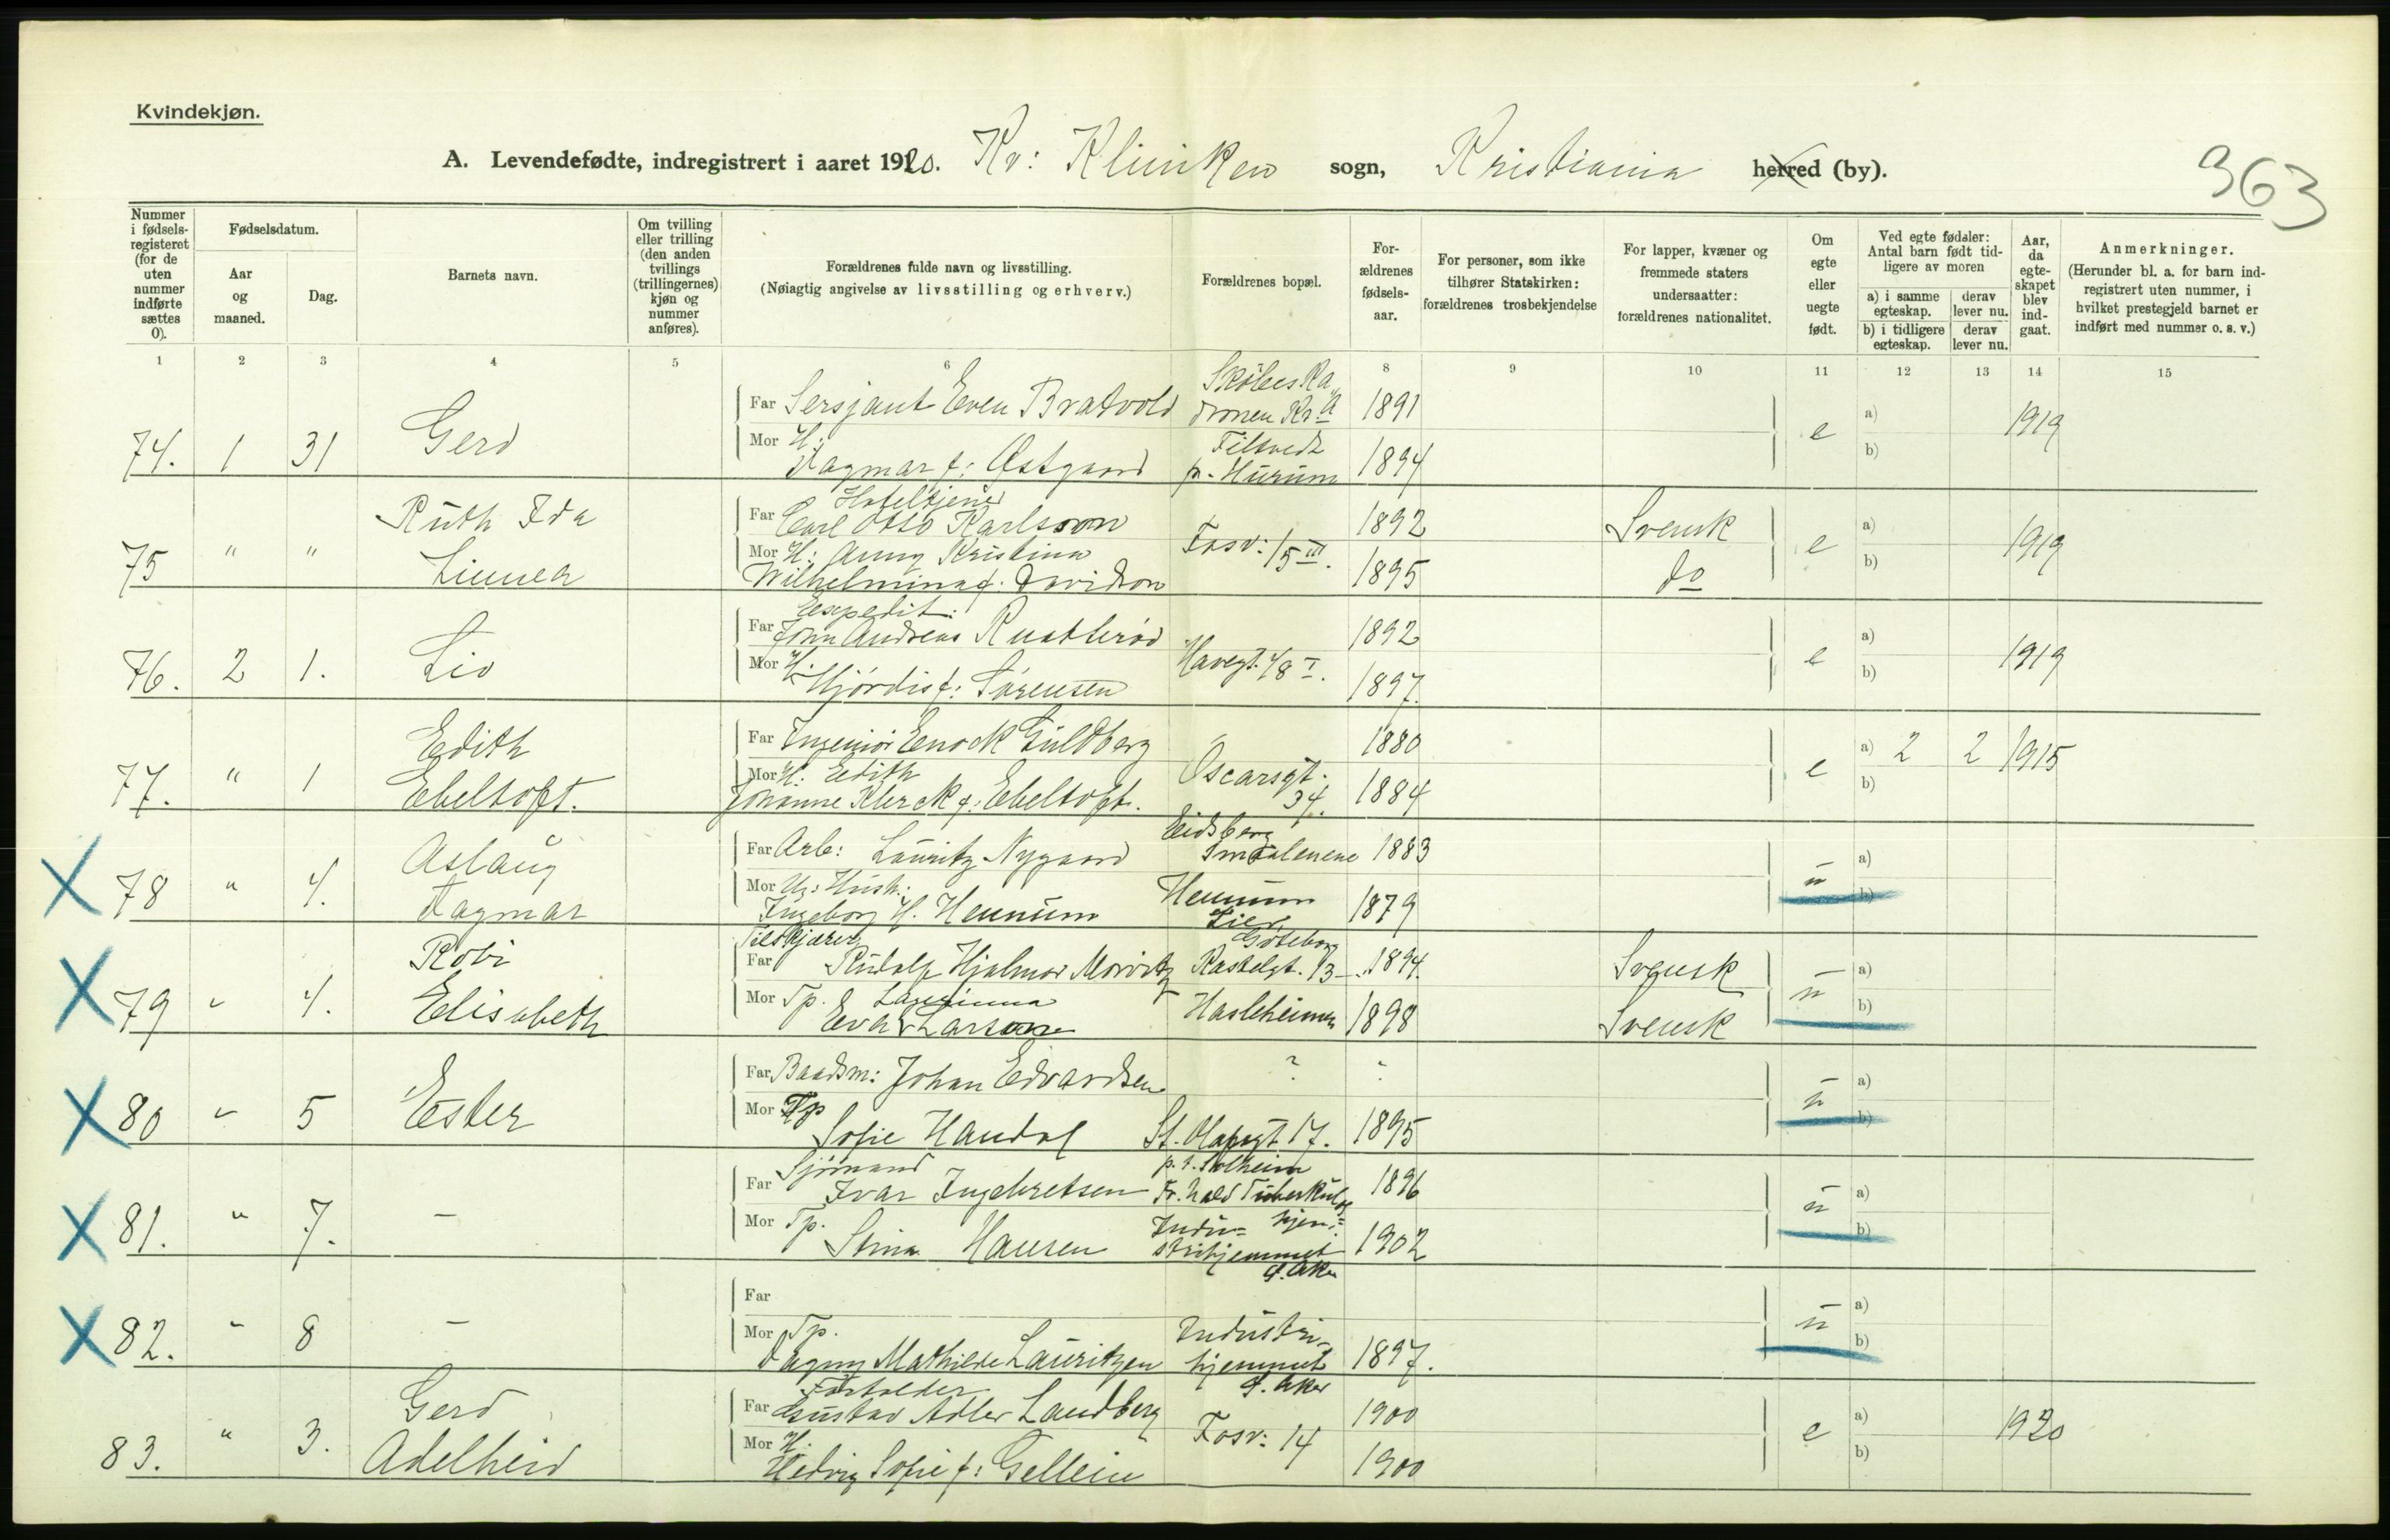 Kvindekjøn.
A. Levendefødte, indregistrert i aaret 1920. Kv: Kliniken sogn, Kristiania herred (by).
363
Nummer i fødselsregisteret (for de uten nummer indførte sættes 0).
Fødselsdatum.
Aar og maaned.
Dag.
Barnets navn.
Om tvilling eller trilling (den anden tvillings (trillingernes) kjøn og nummer anføres).
Forældrenes fulde navn og livsstilling.
(Nøiagtig angivelse av livsstilling og erhverv.)
Forældrenes bopæl.
Forældrenes fødselsaar.
For personer, som ikke tilhører Statskirken: forældrenes trosbekjendelse
For lapper, kvæner og fremmede staters undersaatter: forældrenes nationalitet.
Om egte eller uegte født.
Ved egte fødsler: Antal barn født tidligere av moren
a) i samme egteskap.
derav lever nu.
b) i tidligere egteskap.
derav lever nu.
Aar, da egteskapet blev indgaat.
Anmerkninger.
(Herunder bl. a. for barn indregistrert uten nummer, i hvilket prestegjeld barnet er indført med nummer o. s. v.)
1 2 3 4 5 6 8 9 10 11 12 13 14 15
Far Sersjant Even Bratvold 1891
74. 1 31 Gerd e a) b) 1919
Mor H: Dagmar f: Østgaard Filtvedt p. Hurum 1894
Hoteltjener
Far Carl Otto Karlsson 1892 Svensk
75 " " Ruth Ida Linnea Fosv: 15 III. e a) b) 1919
Mor H: Anny Kristina
Wilhelmina f. Davidson 1895 do
Expedit.
Far John Andreas Rustterød 1892
76. 2 1. Liv Havegt. 4/8 I. e a) b) 1919
Mor H. Hjørdis f: Sørensen 1897.
Far Ingeniør Enock Guldberg 1880
77. " 1 Edith Ebeltoft. Oscarsgt. 34. e a) 2 2 1915 b)
Mor H. Edith
Johanne Klerck f: Ebeltoft. 1884
Far Arb: Lauritz Nygaard Eidsberg Smaalenene 1883
X 78 " 4. Aslaug Dagmar u a) b)
Mor Ug: Hush.:
Ingeborg H. Hennum Hennum Lier 1879
Tilskjærer
Far Rudolf Hjalmar Moritz Göteborg Kastelgt. 13 1894. Svensk
X 79 " 4. Robi Elisabeth u a) b)
Mor Tp. Eva Larsson Hasleheimen 1898 Svensk
Far Baadsm: Johan Edvardsen ? -
X 80 " 5 Ester u a) b)
Mor Tp Sofie Handal St. Olafsgt 17. 1895
Sjømand
Far Ivar Ingebretsen p. t. Solheim Fr.hald Tuberkulosehjem 1896
X 81. " 7. - u a) b)
Mor Tp. Stina Hansen Industrihjemmet Ø. Aker 1902
Far
X 82. " 8 - u a) b)
Mor Tp.
Dagny Mathilde Lauritzen Industrihjemmet Ø. Aker 1897.
Far Gustav Adler Landberg 1900
83. " 3. Gerd Adelheid Fosv: 14 e a) b) 1920
Mor H.
Hedvig Sofie f: Gellein 1900